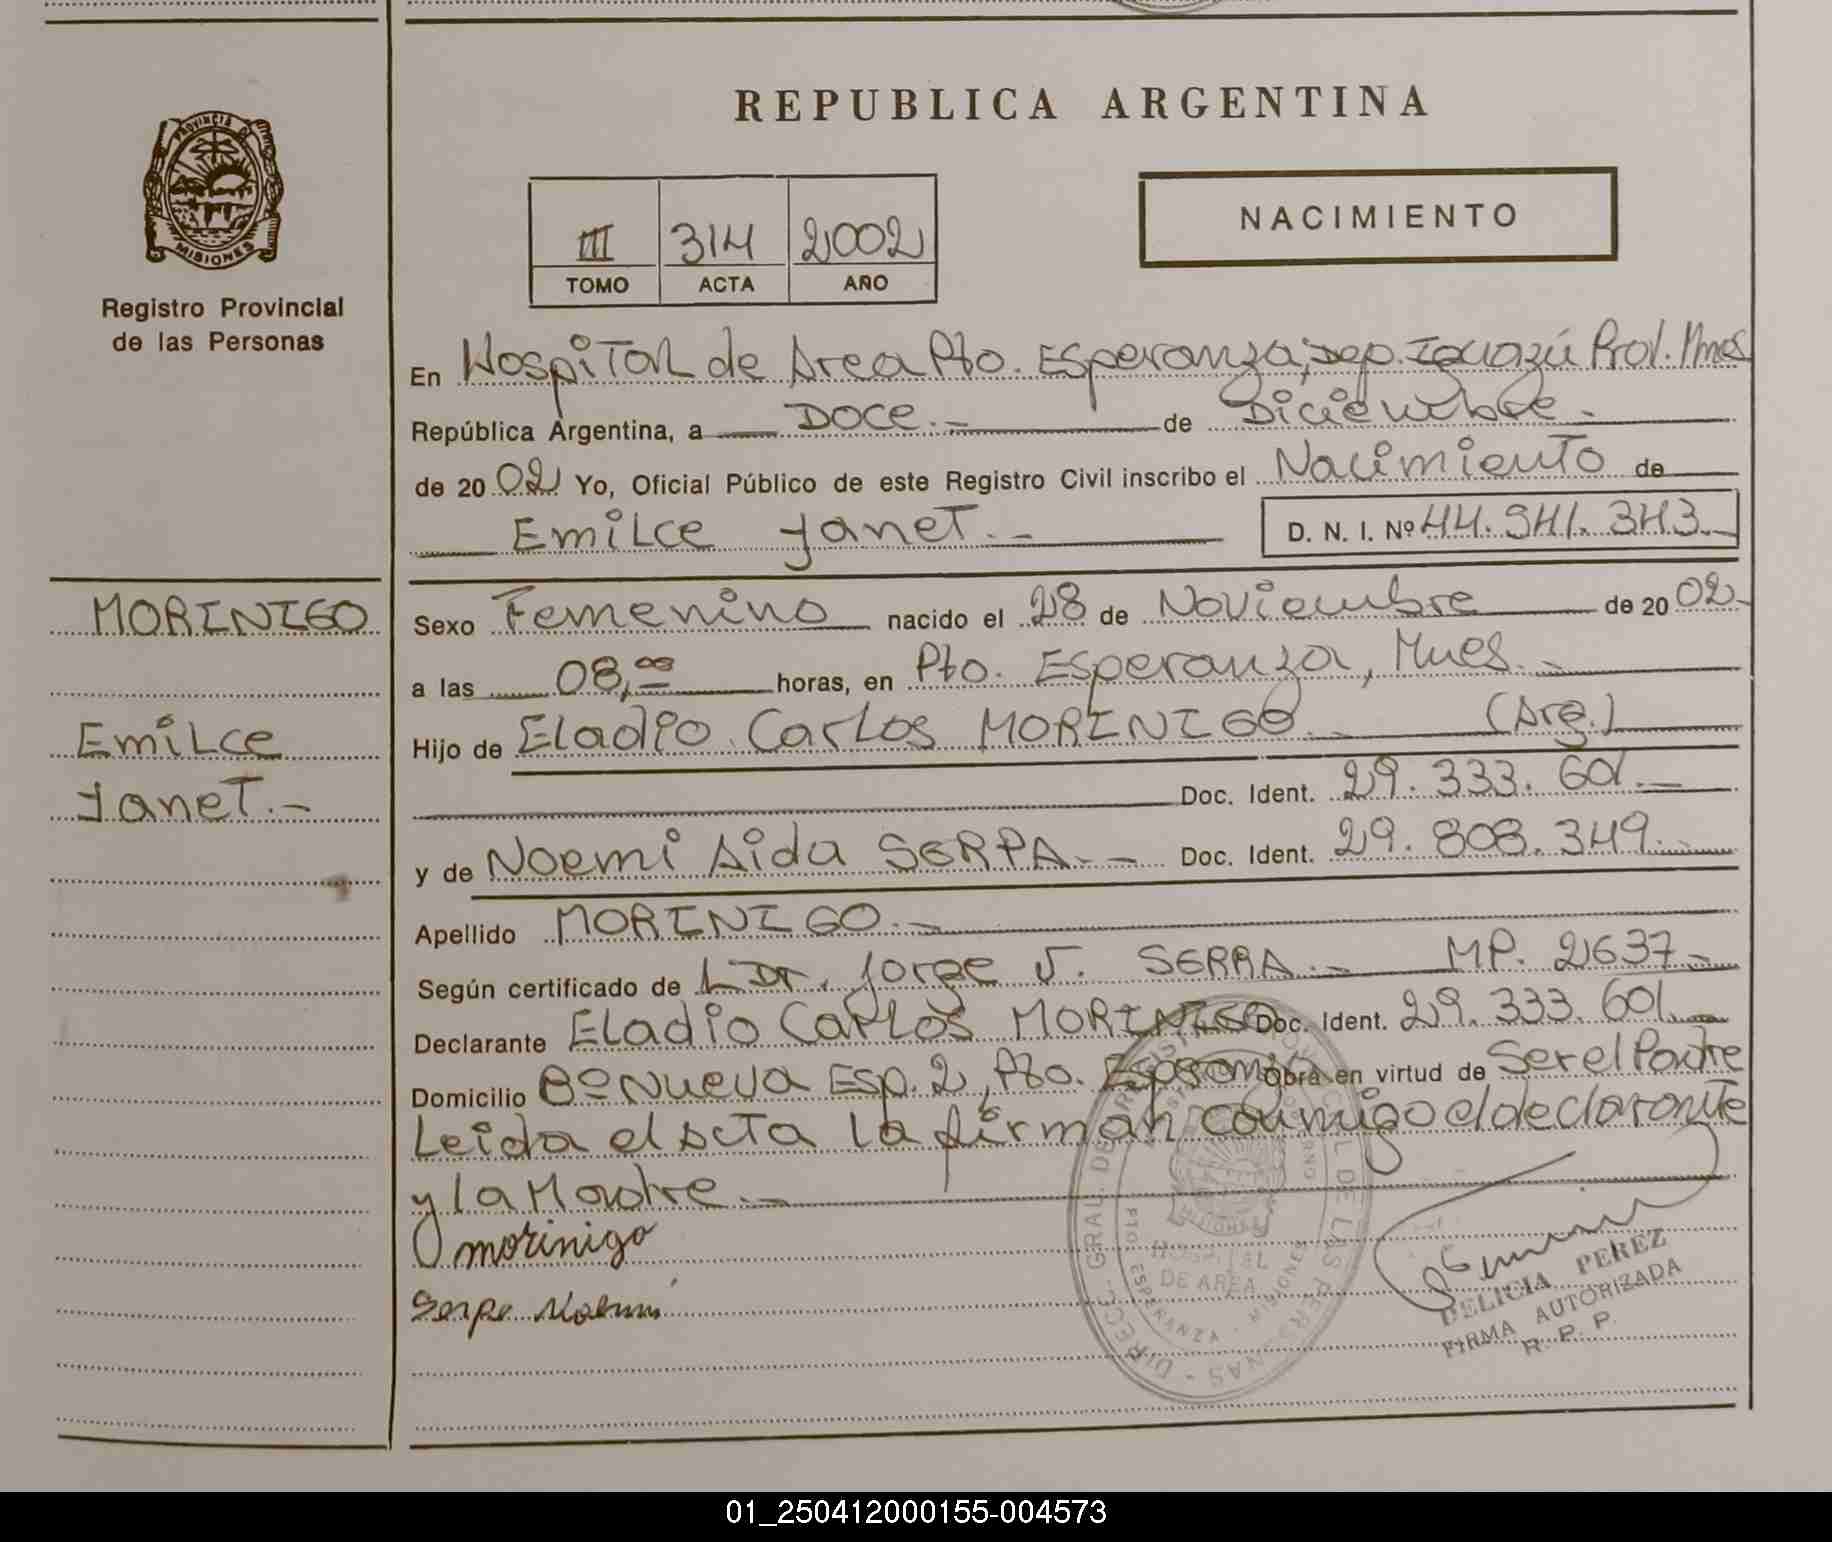 REPUBLICA ARGENTINA
PROVINCIA DE
MISIONES
Registro Provincial
de las Personas
III 314 2002
TOMO ACTA AÑO
NACIMIENTO
En Hospital de Area Pto. Esperanza, Dep. Iguazú Prov. Mnes
República Argentina, a Doce.- de Diciembre.-
de 2002 Yo, Oficial Público de este Registro Civil inscribo el Nacimiento de
Emilce Janet.- D. N. I. Nº 44.941.343.-
MORINIGO
Emilce
Janet.-
Sexo Femenino nacido el 28 de Noviembre de 2002-
a las 08,00 horas, en Pto. Esperanza, Mnes.-
Hijo de Eladio Carlos MORINIGO.- (Arg.)
Doc. Ident. 29.333.601.-
y de Noemi Aida SERPA.- Doc. Ident. 29.808.349.-
Apellido MORINIGO.-
Según certificado de Dr. Jorge J. SERRA.- MP. 2637.-
Declarante Eladio Carlos MORINIGO Doc. Ident. 29.333.601.-
Domicilio Bº Nueva Esp. 2, Pto. Esperanza Obra en virtud de Ser el Padre
Leida el Acta la firman conmigo el declarante
y la Madre.-
morinigo
Serpa Noemi
DIRECC. GRAL. DEL REGISTRO PROVINCIAL DE LAS PERSONAS
HOSPITAL
DE AREA
PTO ESPERANZA - MISIONES
DELICIA PEREZ
FIRMA AUTORIZADA
R. P. P.
01_250412000155-004573